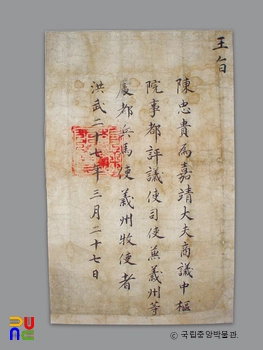 王旨
陳忠貴爲嘉靖大夫商議中樞
院事都評議使司使兼義州等
處都兵馬使義州牧使者
洪武二十七年三月二十七日
PUNC
ⓒ국립중앙박물관